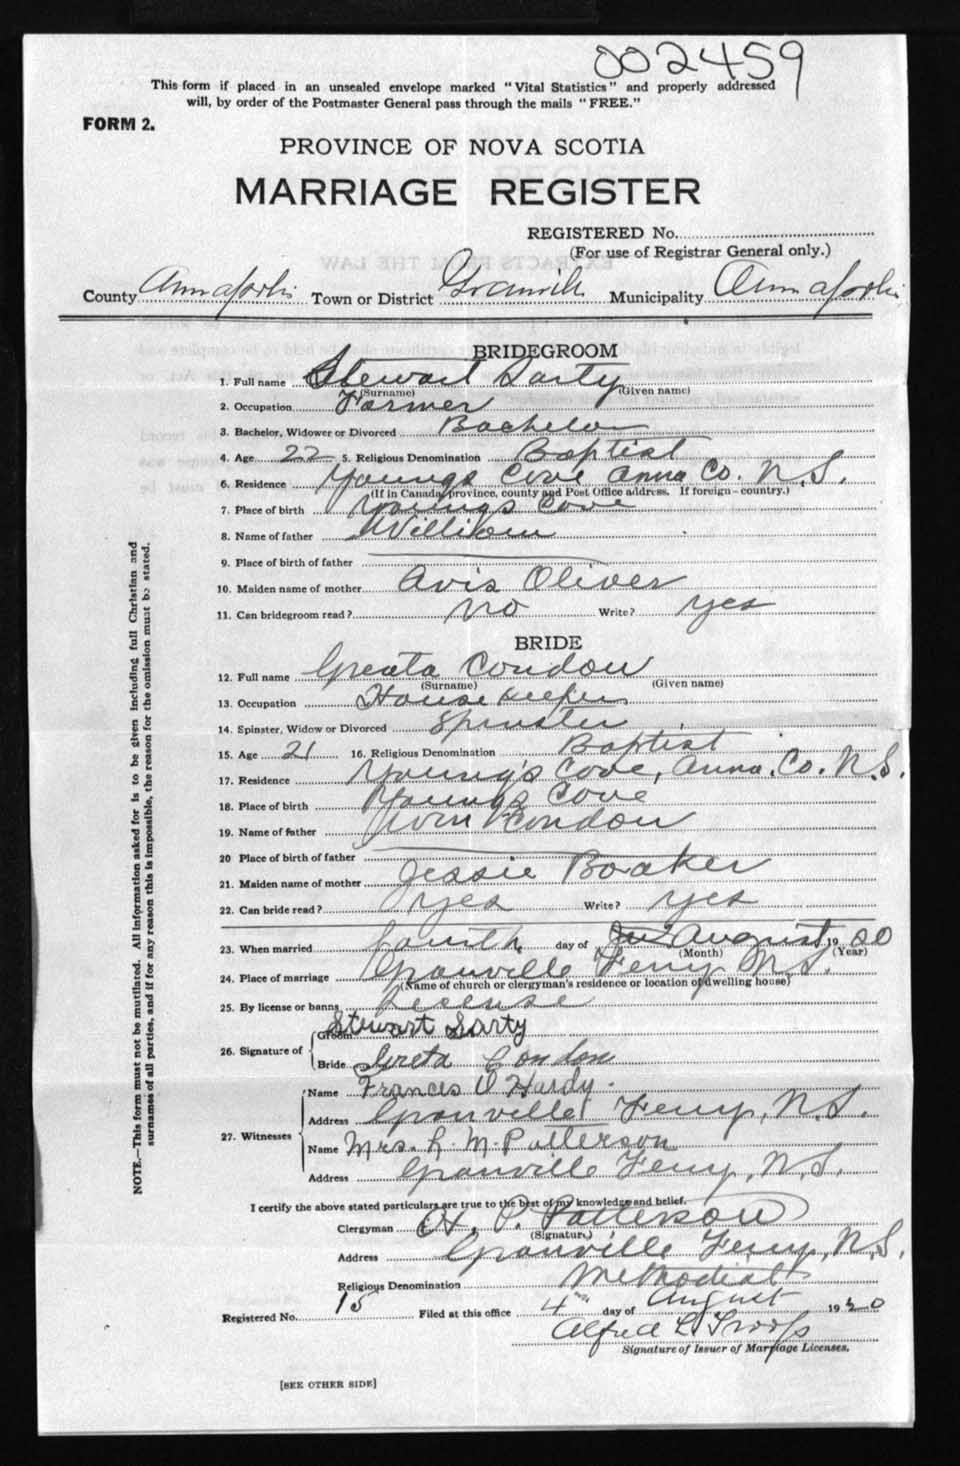 002459
This form if placed in an unsealed envelope marked "Vital Statistics" and properly addressed
will, by order of the Postmaster General pass through the mails "FREE."
FORM 2.
PROVINCE OF NOVA SCOTIA
MARRIAGE REGISTER
REGISTERED No.
(For use of Registrar General only.)
County Annapolis Town or District Granville Municipality Annapolis
BRIDEGROOM
1. Full name Stewart Sarty
(Surname) (Given name)
2. Occupation Farmer
3. Bachelor, Widower or Divorced Bachelor
4. Age 22 5. Religious Denomination Baptist
6. Residence Youngs Cove Anna Co. N.S.
(If in Canada, province, county and Post Office address. If foreign-country.)
7. Place of birth Youngs Cove
8. Name of father William
9. Place of birth of father
10. Maiden name of mother Avis Oliver
11. Can bridegroom read? no Write? yes
BRIDE
12. Full name Greata Condon
(Surname) (Given name)
13. Occupation House keeper
14. Spinster, Widow or Divorced Spinster
15. Age 21 16. Religious Denomination Baptist
17. Residence Young's Cove, Anna. Co. N.S.
18. Place of birth Youngs Cove
19. Name of father Condon
20 Place of birth of father
21. Maiden name of mother Jessie
22. Can bride read? yes Write? yes
23. When married fourth day of August 1920
(Month) (Year)
24. Place of marriage Granville Ferry N.S.
(Name of church or clergyman's residence or location of dwelling house)
25. By license or banns License
26. Signature of Groom Stewart Sarty
Bride Greta Condon
27. Witnesses Name Frances O Hardy.
Address Granville Ferry, N.S.
Name Mrs. L. M. Patterson
Address Granville Ferry, N.S.
I certify the above stated particulars are true to the best of my knowledge and belief.
Clergyman P. Patterson
(Signature)
Address Granville Ferry, N.S.
Religious Denomination Methodist
Registered No. 15 Filed at this office 4th day of August 1920
Alfred L Troop
Signature of Issuer of Marriage Licenses.
[SEE OTHER SIDE]
NOTE.—This form must not be mutilated. All information asked for is to be given including full Christian and
surnames of all parties, and if for any reason this is impossible, the reason for the omission must be stated.